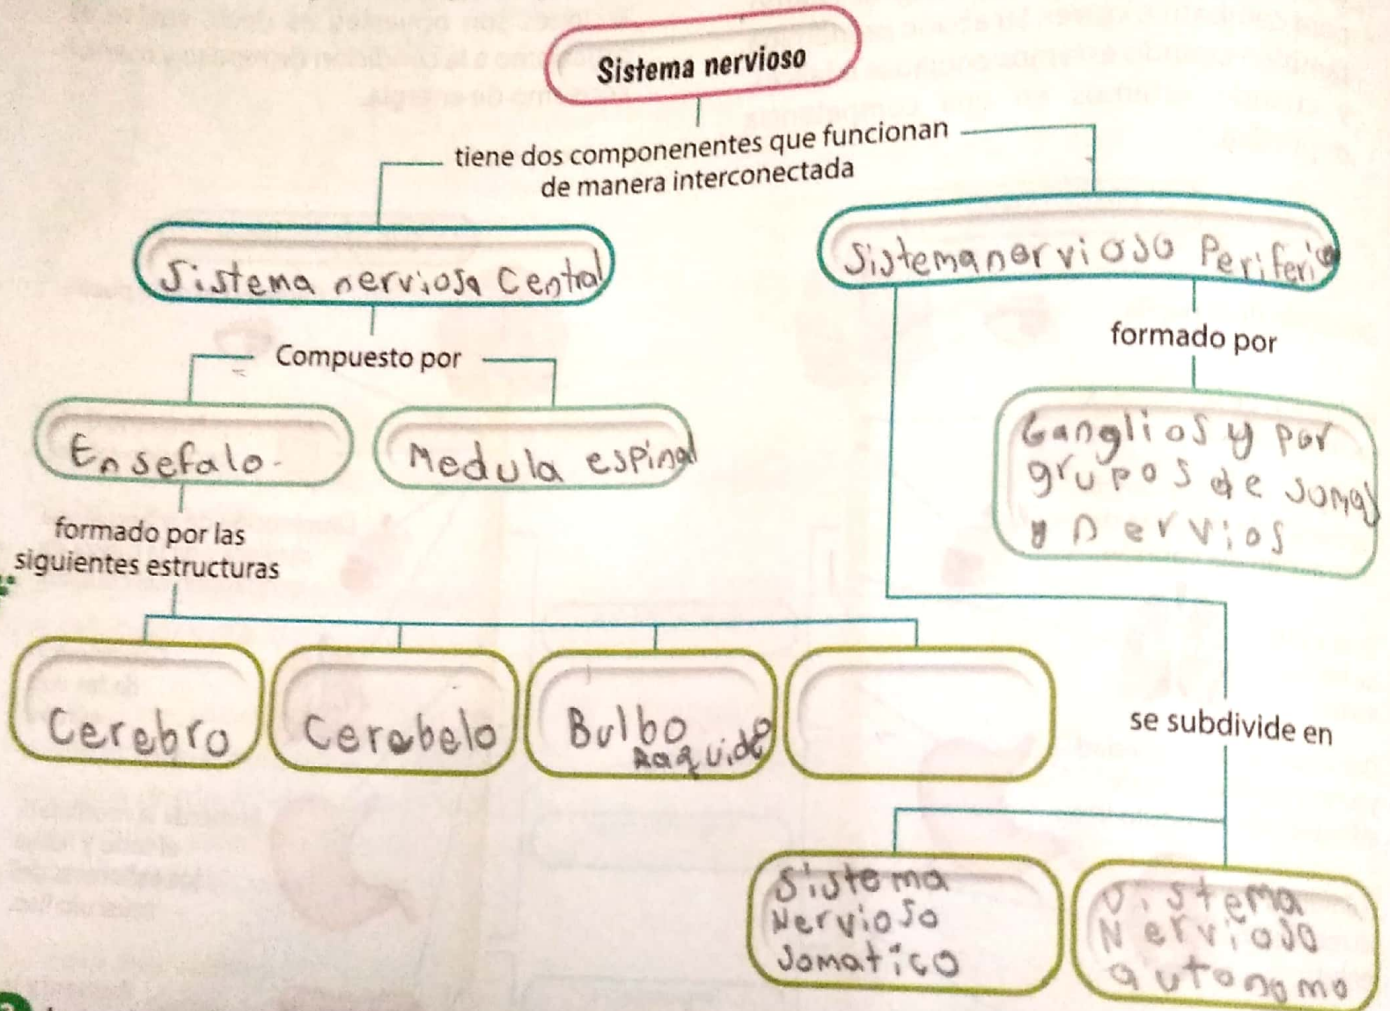 Sistema nervioso
tiene dos componenentes que funcionan
de manera interconectada
Sistema nerviosa Central
Sistema nervioso Periferico
Compuesto por
formado por
Ensefalo
Medula espinal
Ganglios y por
grupos de somas
y nervios
formado por las
siguientes estructuras
Cerebro
Cerebelo
Bulbo
Raquideo
se subdivide en
Sistema
Nervioso
Somatico
Sistema
Nervioso
autonomo